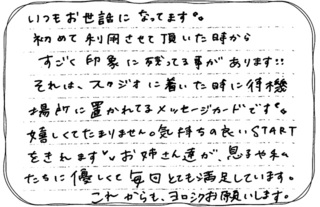 いつもお世話になってます。
初めて利用させて頂いた時から
すごく印象に残ってる事があります!!
それは、スタジオに着いた時に待機
場所に置かれてるメッセージカードです。
嬉しくてたまりません。気持ちの良いSTART
をきれます。お姉さん達が、息子や私
たちに優しくて毎回とても満足しています。
これからも、ヨロシクお願いします。